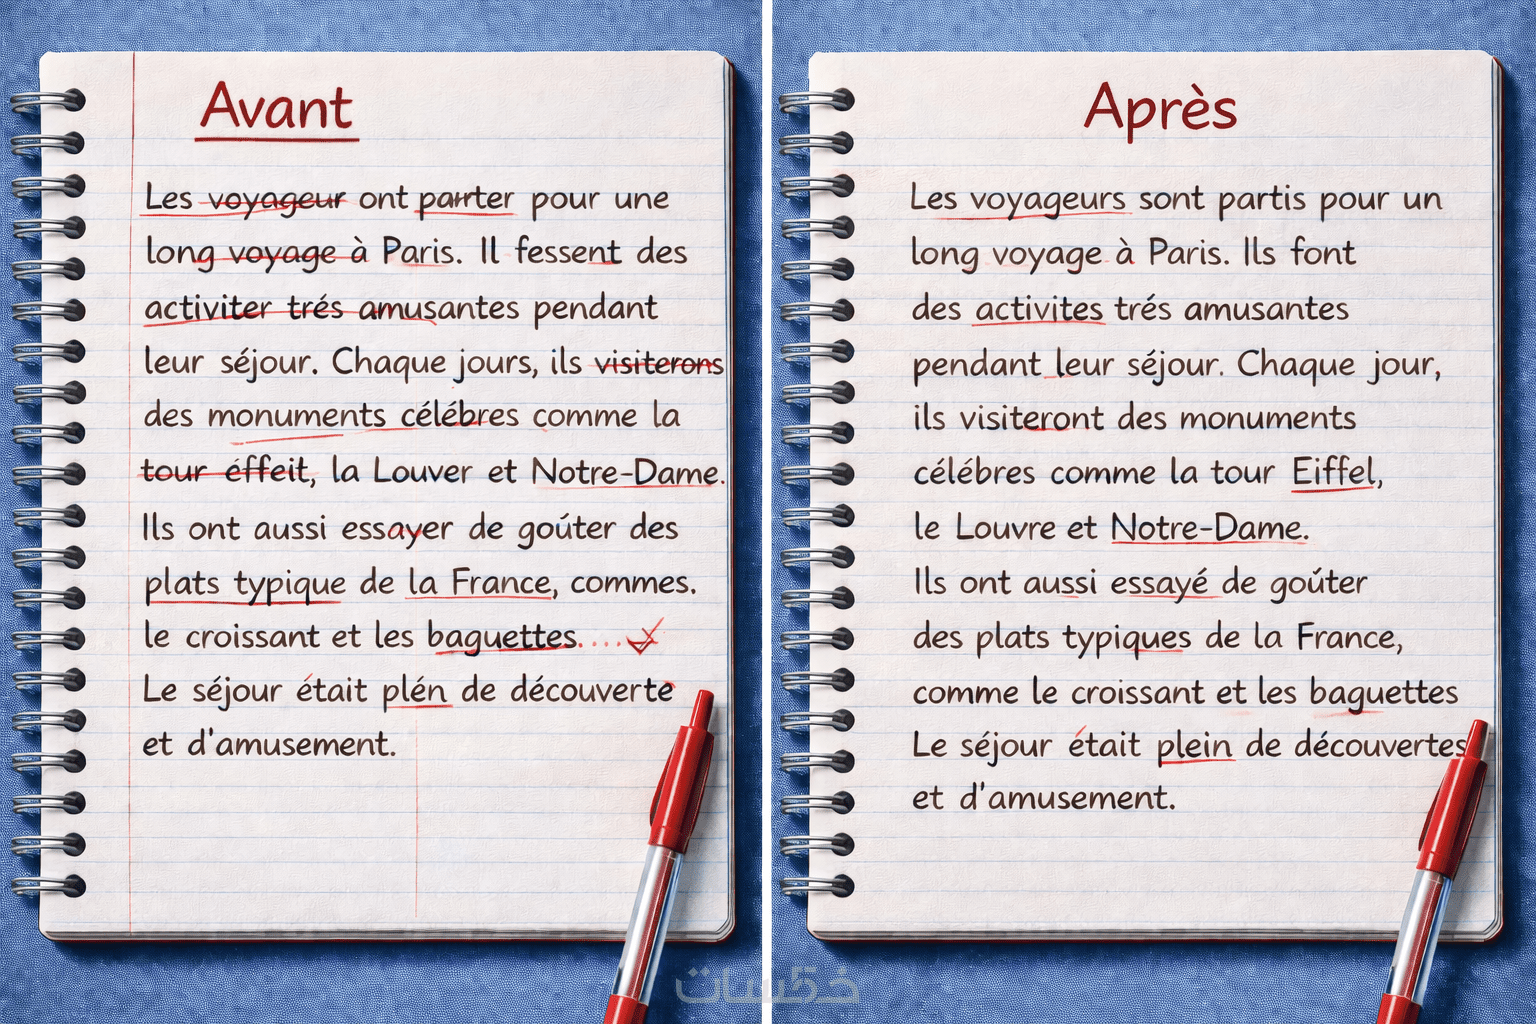 Avant
Les voyageur ont parrter pour une
long voyage à Paris. Il fessent des
activiter trés amusantes pendant
leur séjour. Chaque jours, ils visiterons
des monuments célébres comme la
tour éffeit, la Louver et Notre-Dame.
Ils ont aussi essayer de goúter des
plats typique de la France, commes.
le croissant et les baguettes....
Le séjour était plén de découverte
et d'amusement.
Après
Les voyageurs sont partis pour un
long voyage à Paris. Ils font
des activites trés amusantes
pendant leur séjour. Chaque jour,
ils visiteront des monuments
célébres comme la tour Eiffel,
le Louvre et Notre-Dame.
Ils ont aussi essayé de goúter
des plats typiques de la France,
comme le croissant et les baguettes
Le séjour était plein de découvertes
et d'amusement.
خمسات